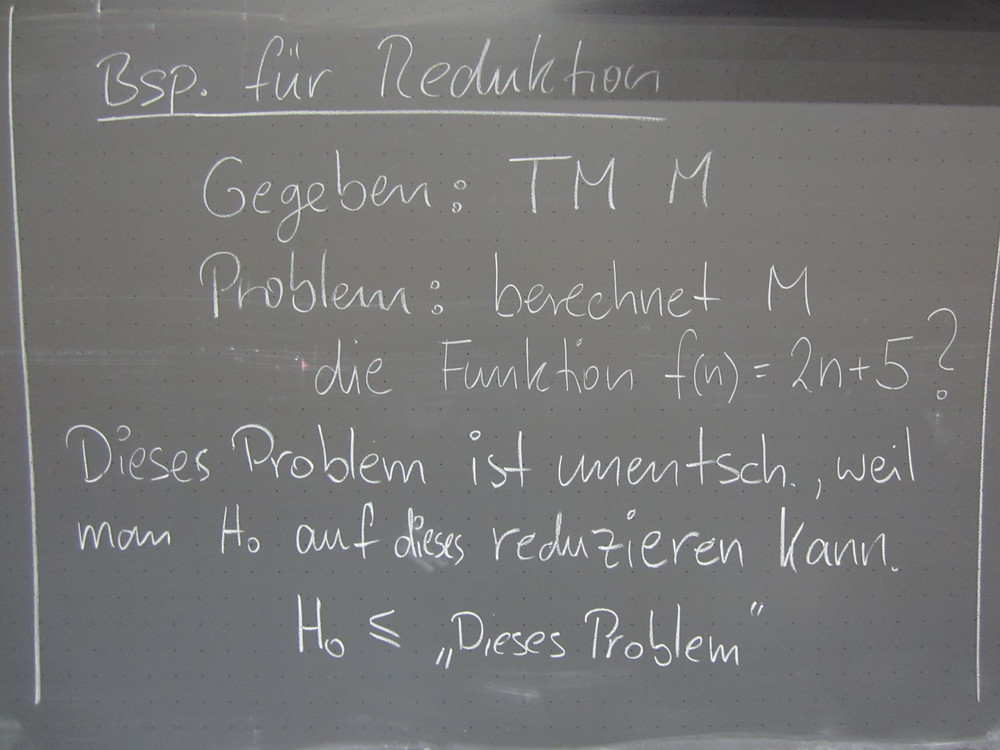 Bsp. für Reduktion
Gegeben: TM M
Problem: berechnet M
die Funktion f(n) = 2n+5?
Dieses Problem ist unentsch., weil
man H₀ auf dieses reduzieren kann.
H₀ ≤ „Dieses Problem“